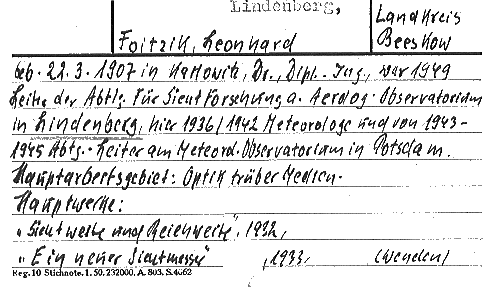 Lindenberg,
Landkreis
Beeskow
Foitzik, Leonhard
geb. 22.3.1907 in Kattowitz, Dr., Dipl.-Ing., war 1949
Leiter der Abtlg. für Sichtforschung a. Aerolog. Observatorium
in Lindenberg, hier 1936/1942 Meteorologe und von 1943-
1945 Abtg.-Leiter am Meteorol. Observatorium in Potsdam.
Hauptarbeitsgebiet: Optik trüber Medien.
Hauptwerke:
"Sichtweite und Reichweite", 1932,
"Ein neuer Sichtmesser" ,1933, (wenden)
Reg. 10 Stichnote. 1. 50. 232000. A. 803. S. 4662